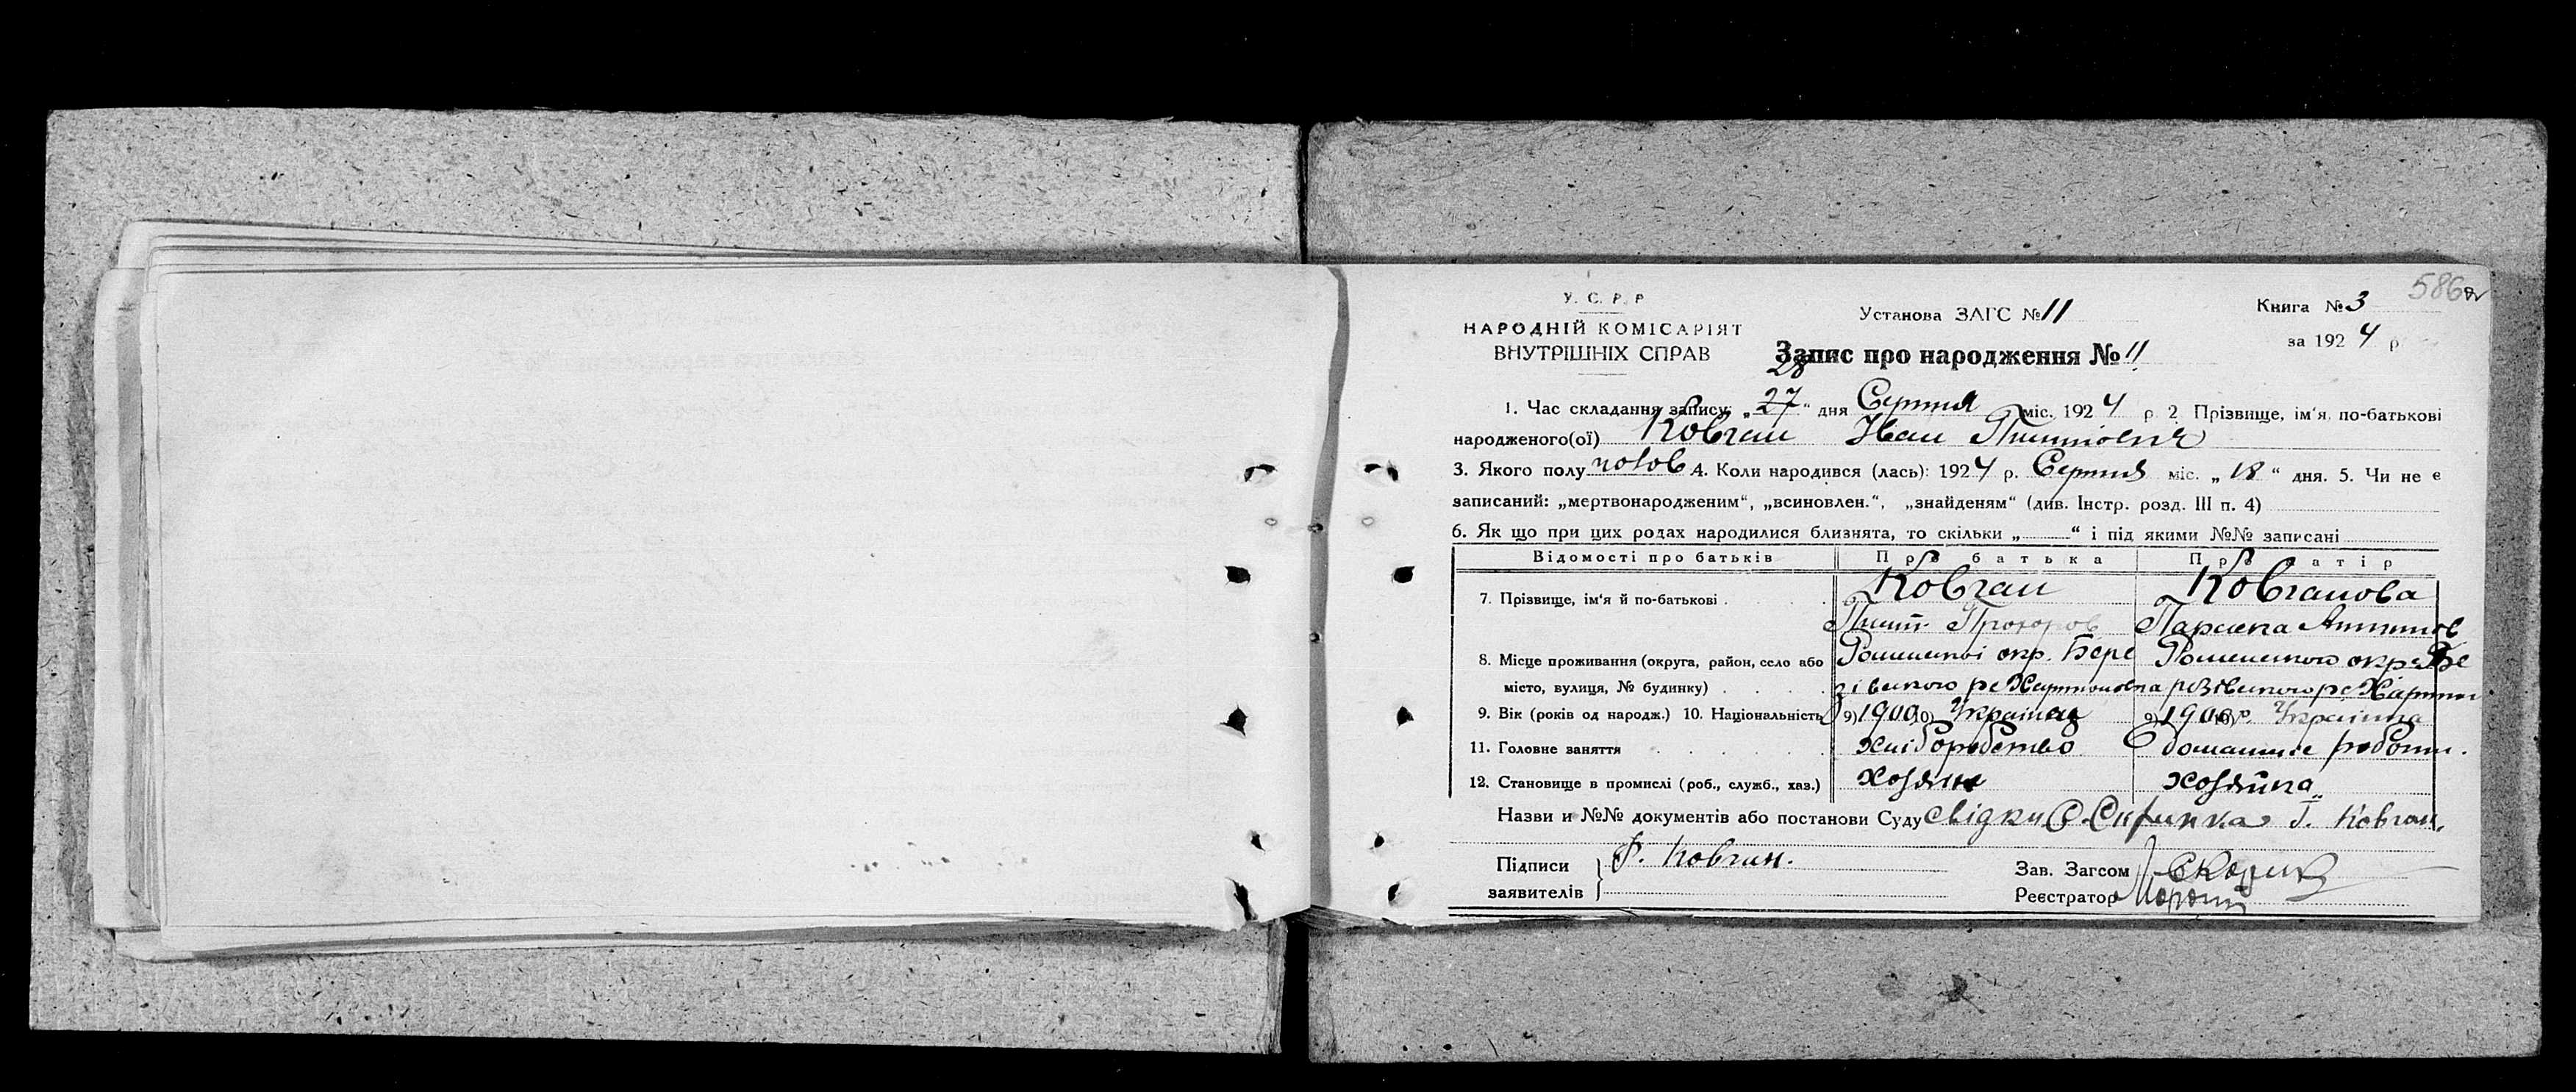 586
У. С. Р. Р
НАРОДНІЙ КОМІСАРІЯТ
ВНУТРІШНІХ СПРАВ
Установа ЗАГС № 11
Книга № 3
за 1924 р
Запис про народження № 11
28
1. Час складання запису: „27“ дня Серпня міс. 1924 р 2 Прізвище, ім‘я, по-батькові
народженого(ої) Ковган Иван
3. Якого полу чолов 4. Коли народився (лась): 1924 р. Серпня міс. „18“ дня. 5. Чи не є
записаний: „мертвонародженим“, „всиновлен.“, „знайденям“ (див. Інстр. розд. III п. 4)
6. Як що при цих родах народилися близнята, то скільки „ “ і під якими №№ записані
Відомості про батьків Про батька Про матір
7. Прізвище, ім‘я й по-батькові Ковган Ковганова
Прохоров Параска
8. Місце проживання (округа, район, село або Роменської окр. Бере Роменського окр Бе
місто, вулиця, № будинку) зівського
9. Вік (років од народж.) 10. Національність 9) 1900 10) Українец 9) 1900 10) Українка
11. Головне заняття хліборобство домашнє роботи.
12. Становище в промислі (роб., служб., хаз.) хозяин хозяйка
Назви и №№ документів або постанови Суду Свідки С. Ковган.
Підписи
заявителів Ковган.
Зав. Загсом
Реєстратор